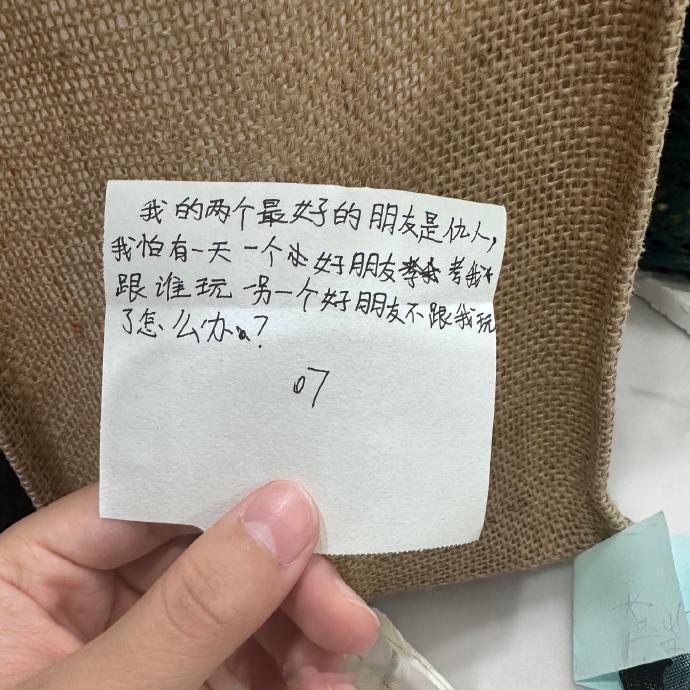 我的两个最好的朋友是仇人,
我怕有一天一个好朋友考我
跟谁玩 另一个好朋友不跟我玩
了怎么办?
07